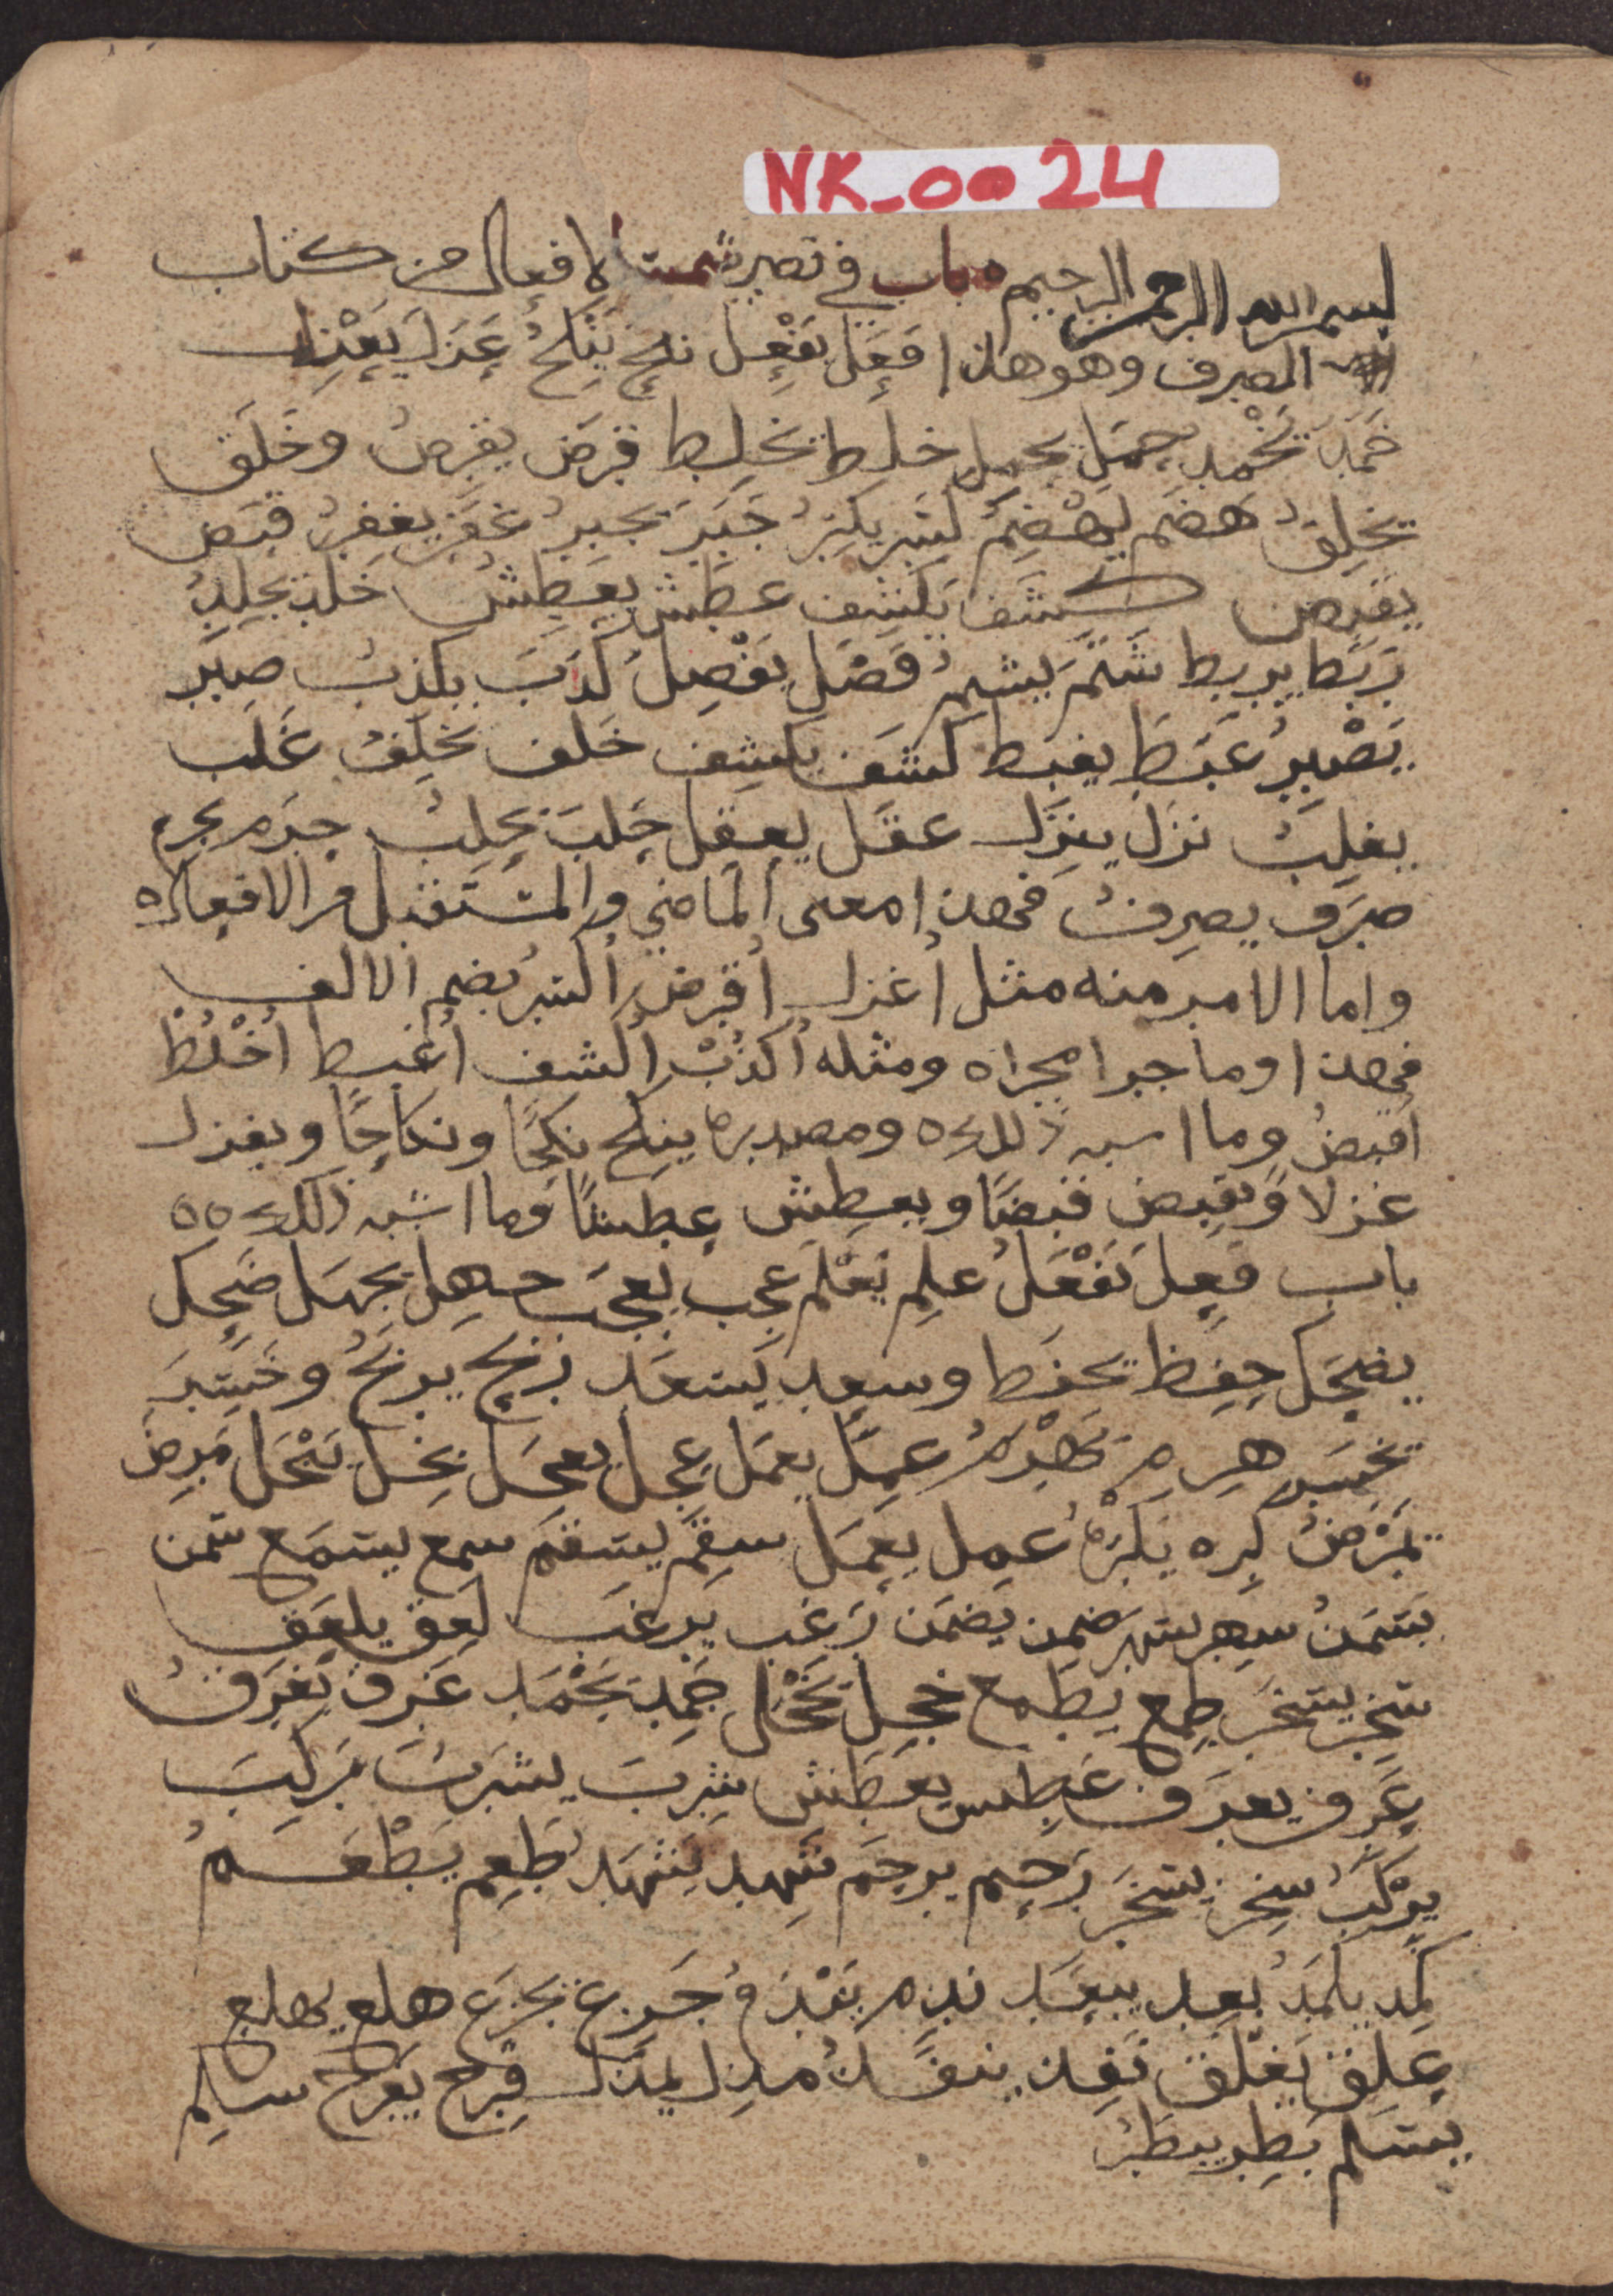 NK_0024
بسم الله الرحمن الرحيم باب في تصريف الافعال من كتاب
الصرف وهو هذا فَعَلَ يَفْعِل نكح يَنْكِحُ غَزَلَ يَغْزِل
خَمَدَ يَخْمِد حمَل يحمل خلط يخلط قرض يقرض وخَلَق
يخلِقُ هضَم يَهْضِمُ كسَر يكسِرُ جَبَرَ يجبِرُ غفَر يغفِرُ قبَض
يقبِض كشَف يكشِف عطش يعطِشُ جلد يجلِدُ
رَبَط يربط شَتَمَ يشتمُ فَصَل يَفْصِلُ كَذَبَ يكذبُ صبَر
يَصْبِرُ غَبَطَ يغبط كشَف يكشِف خَلف يخلِفُ غَلب
يغلِبُ نزَل ينزِل عقَل يعقِل جَلَبَ يجلِبُ جرَم يجرم
صرَف يصرِفُ فهذا معنى الماضي والمستقبل من الافعال
واما الامر منه مثل أُغزل أُقرض أُكسر بضم الالف
فهذا وما جرا مجراه ومثله أُكذُبْ أُكشف أُغبط أُخْلُطْ
أُقبضُ وما اشبه ذلك ومصدره ينكح نكحًا ونكاحًا ويغزل
غزلا ويقبِض قبضًا ويعطِش عطشًا وما اشبه ذلك
باب فَعِلَ يَفْعَلُ علِم يَعْلَم عجب يعجَب جهِل يجهَل ضَحِكَ
يضحَك حفِظ يحفَظ وسعِد يَسعَد ربح يربَحُ وخَسِرَ
يخسَر هرِم يَهْرَمُ عمِل يعمَل عجِل يعجَل بخِل يَبْخَل مَرِضَ
يَمْرَضُ كرِه يَكْرَهُ عمِل يعمَل سقِم يسقَم سمع يسمَع سمن
يَسْمَنُ سهِر يسهَر ضمِن يضمَن رَغب يرغَب لعِق يلعَق
سخِر يسخَر طمِع يطمع خجِل يَخْجَل حَمِد يَحْمَد غَرِق يَغرَقُ
عَرِف يعرَف عَطِس يعطَش شرِبَ يشرَبُ رَكِبَ
يرْكَبُ سخِر يسخَر رَحِم يرحَم شهِد يَشهَد طَعِم يَطْعَمُ
كَمِد يكمَدُ بعِد يبعَد ندِم يَنْدَمُ جَزِع يجزَع هلِع يهلع
غلِق يَغْلَق نَفِد ينفَدُ مذِل يمذَل فرِح يَفرَح سلِم
يسلَم بَطِر يبطَرُ